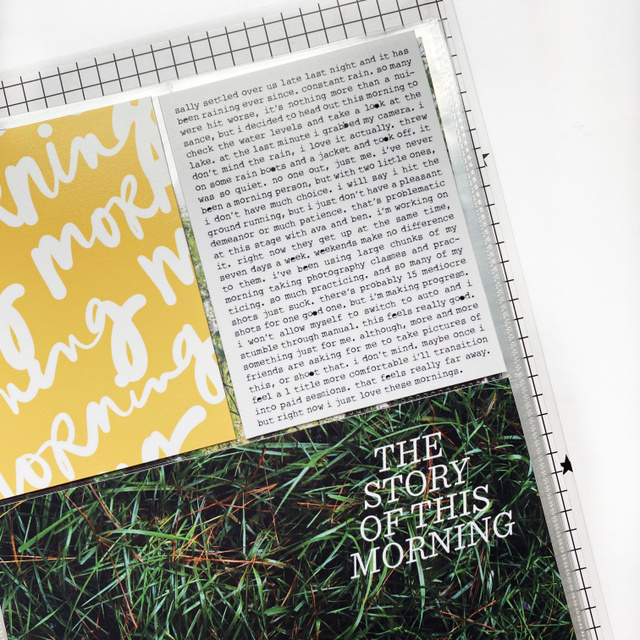 sally settled over us late last night and it has
been raining ever since. constant rain. so many
were hit worse, it's nothing more than a nui-
sance, but i decided to head out this morning to
check the water levels and take a look at the
lake. at the last minute i grabbed my camera. i
don't mind the rain, i love it actually. threw
on some rain boots and a jacket and took off. it
was so quiet. no one out, just me. i've never
been a morning person, but with two little ones,
i don't have much choice. i will say i hit the
ground running, but i just don't have a pleasant
demeanor or much patience. that's problematic
at this stage with ava and ben. i'm working on
it. right now they get up at the same time,
seven days a week. weekends make no difference
to them. i've been using large chunks of my
morning taking photography classes and prac-
ticing. so much practicing. and so many of my
shots just suck. there's probably 15 mediocre
shots for one good one. but i'm making progress.
i won't allow myself to switch to auto and i
stumble through manual. this feels really good.
something just for me. although, more and more
friends are asking for me to take pictures of
this, or shoot that. i don't mind. maybe once i
feel a l title more comfortable i'll transition
into paid sessions. that feels really far away.
but right now i just love these mornings.
morn
morning
morning
THE
STORY
OF THIS
MORNING